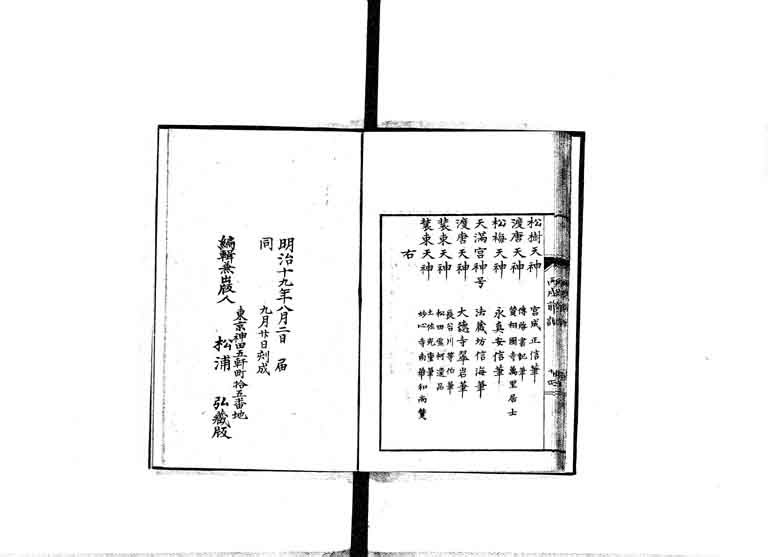 松樹天神 宮成正信筆
渡唐天神 傳啓書記筆
賛相國寺萬里居士
松梅天神 永真安信筆
天満宮神号 法蔵坊信海筆
渡唐天神 大徳寺翠岩筆
装束天神 長谷川等伯筆
松田雪柯遺品
装束天神 土佐光重筆
妙心寺南華和尚賛
右
明治十九年八月二日 届
同 九月廿日刻成
東京神田五軒町拾五番地
編輯兼出版人 松浦 弘蔵版